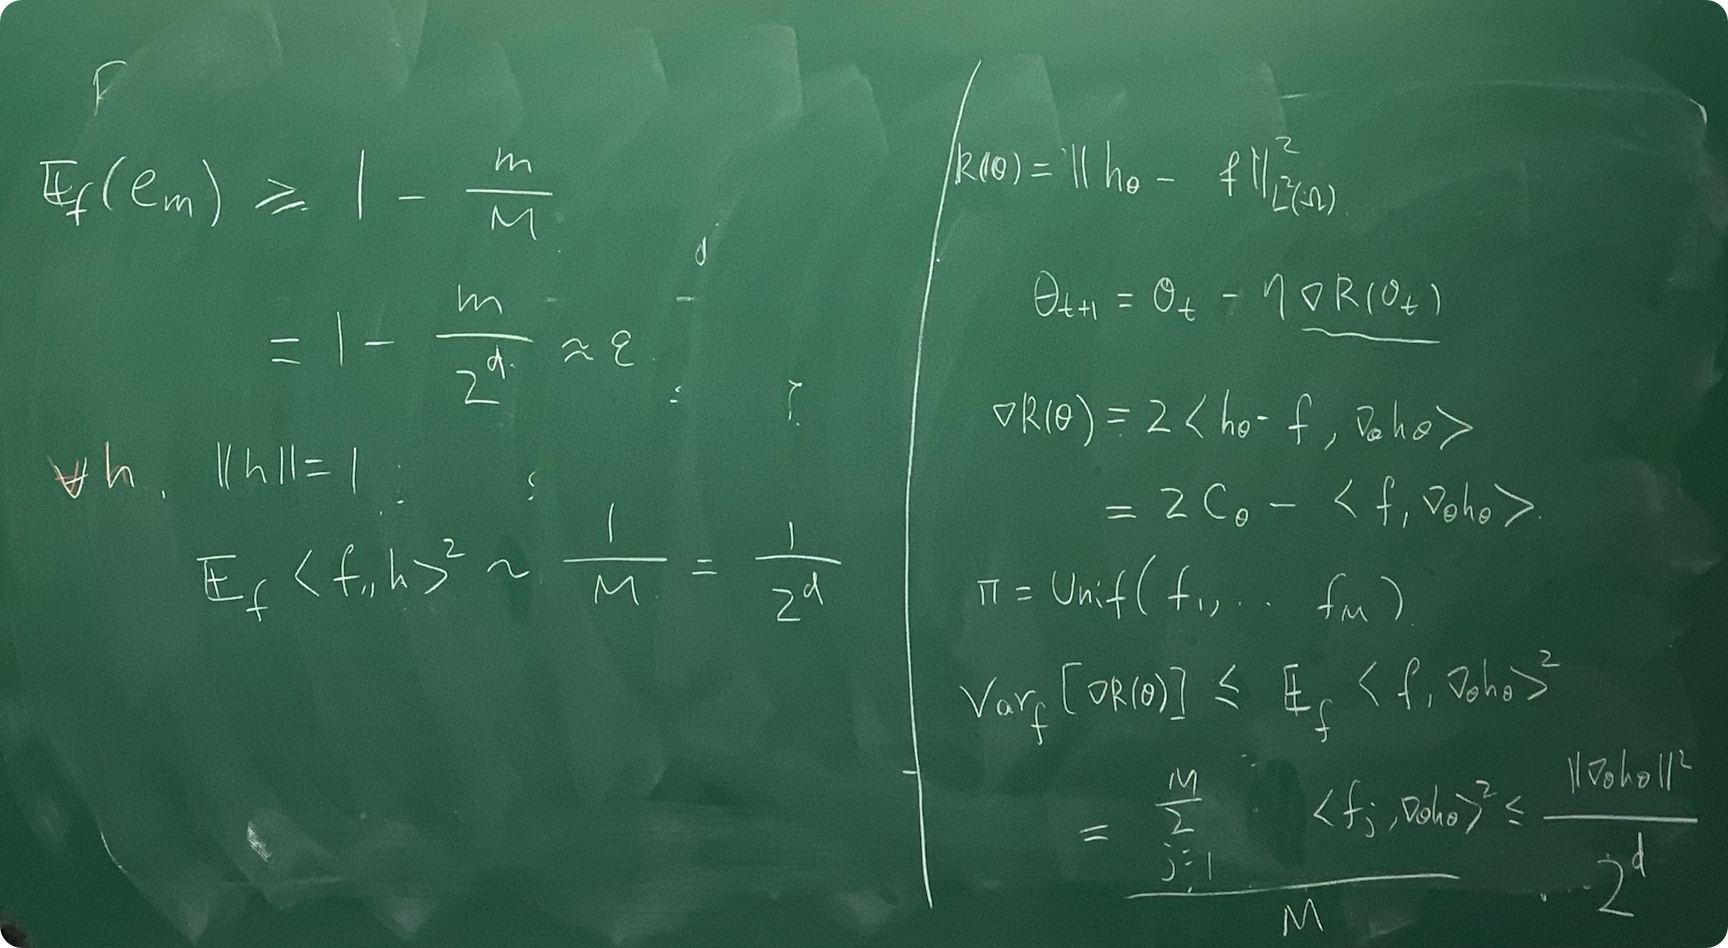 𝔼_f(e_m) ⩾ 1 - m/M
= 1 - m/2^d ≈ ε
∀h, ||h|| = 1
𝔼_f <f, h>² ~ 1/M = 1/2^d
R(θ) = || h_θ - f ||²_{L²(Ω)}
θ_{t+1} = θ_t - η ∇R(θ_t)
∇R(θ) = 2 <h_θ - f, ∇_θ h_θ>
= 2 C_θ - <f, ∇_θ h_θ>.
π = Unif(f_1, .. f_M)
Var_f [∇R(θ)] ≤ 𝔼_f <f, ∇_θ h_θ>²
= (Σ_{j=1}^M <f_j, ∇_θ h_θ>²)/M ≤ ||∇_θ h_θ||²/2^d